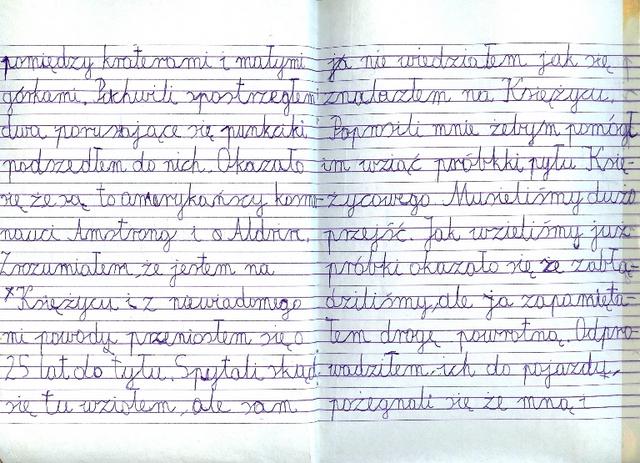 pomiędzy kraterami i małymi
górkami. Pochwili spostrzegłem
dwa poruszające się punkciki
podszedłem do nich. Okazało
się że są to amerykańscy kosmo-
nauci Amstrong i Aldrin.
Zrozumiałem, że jestem na
Księżycu i z niewiadomego
mi powodu przeniosłem się o
25 lat do tyłu. Spytali skąd
się tu wziołem, ale sam
ja nie wiedziałem jak się
znalazłem na Księżycu.
Poprosili mnie żebym pomógł
im wziąć próbkki pyłu Księ-
życowego. Musieliśmy dużo
przejść. Jak wzieliśmy już
próbki okazało się że zabłą-
dziliśmy, ale ja zapamięta-
łem drogę powrotną. Odpro-
wadziłem ich do pojazdu,
pożegnali się ze mną i